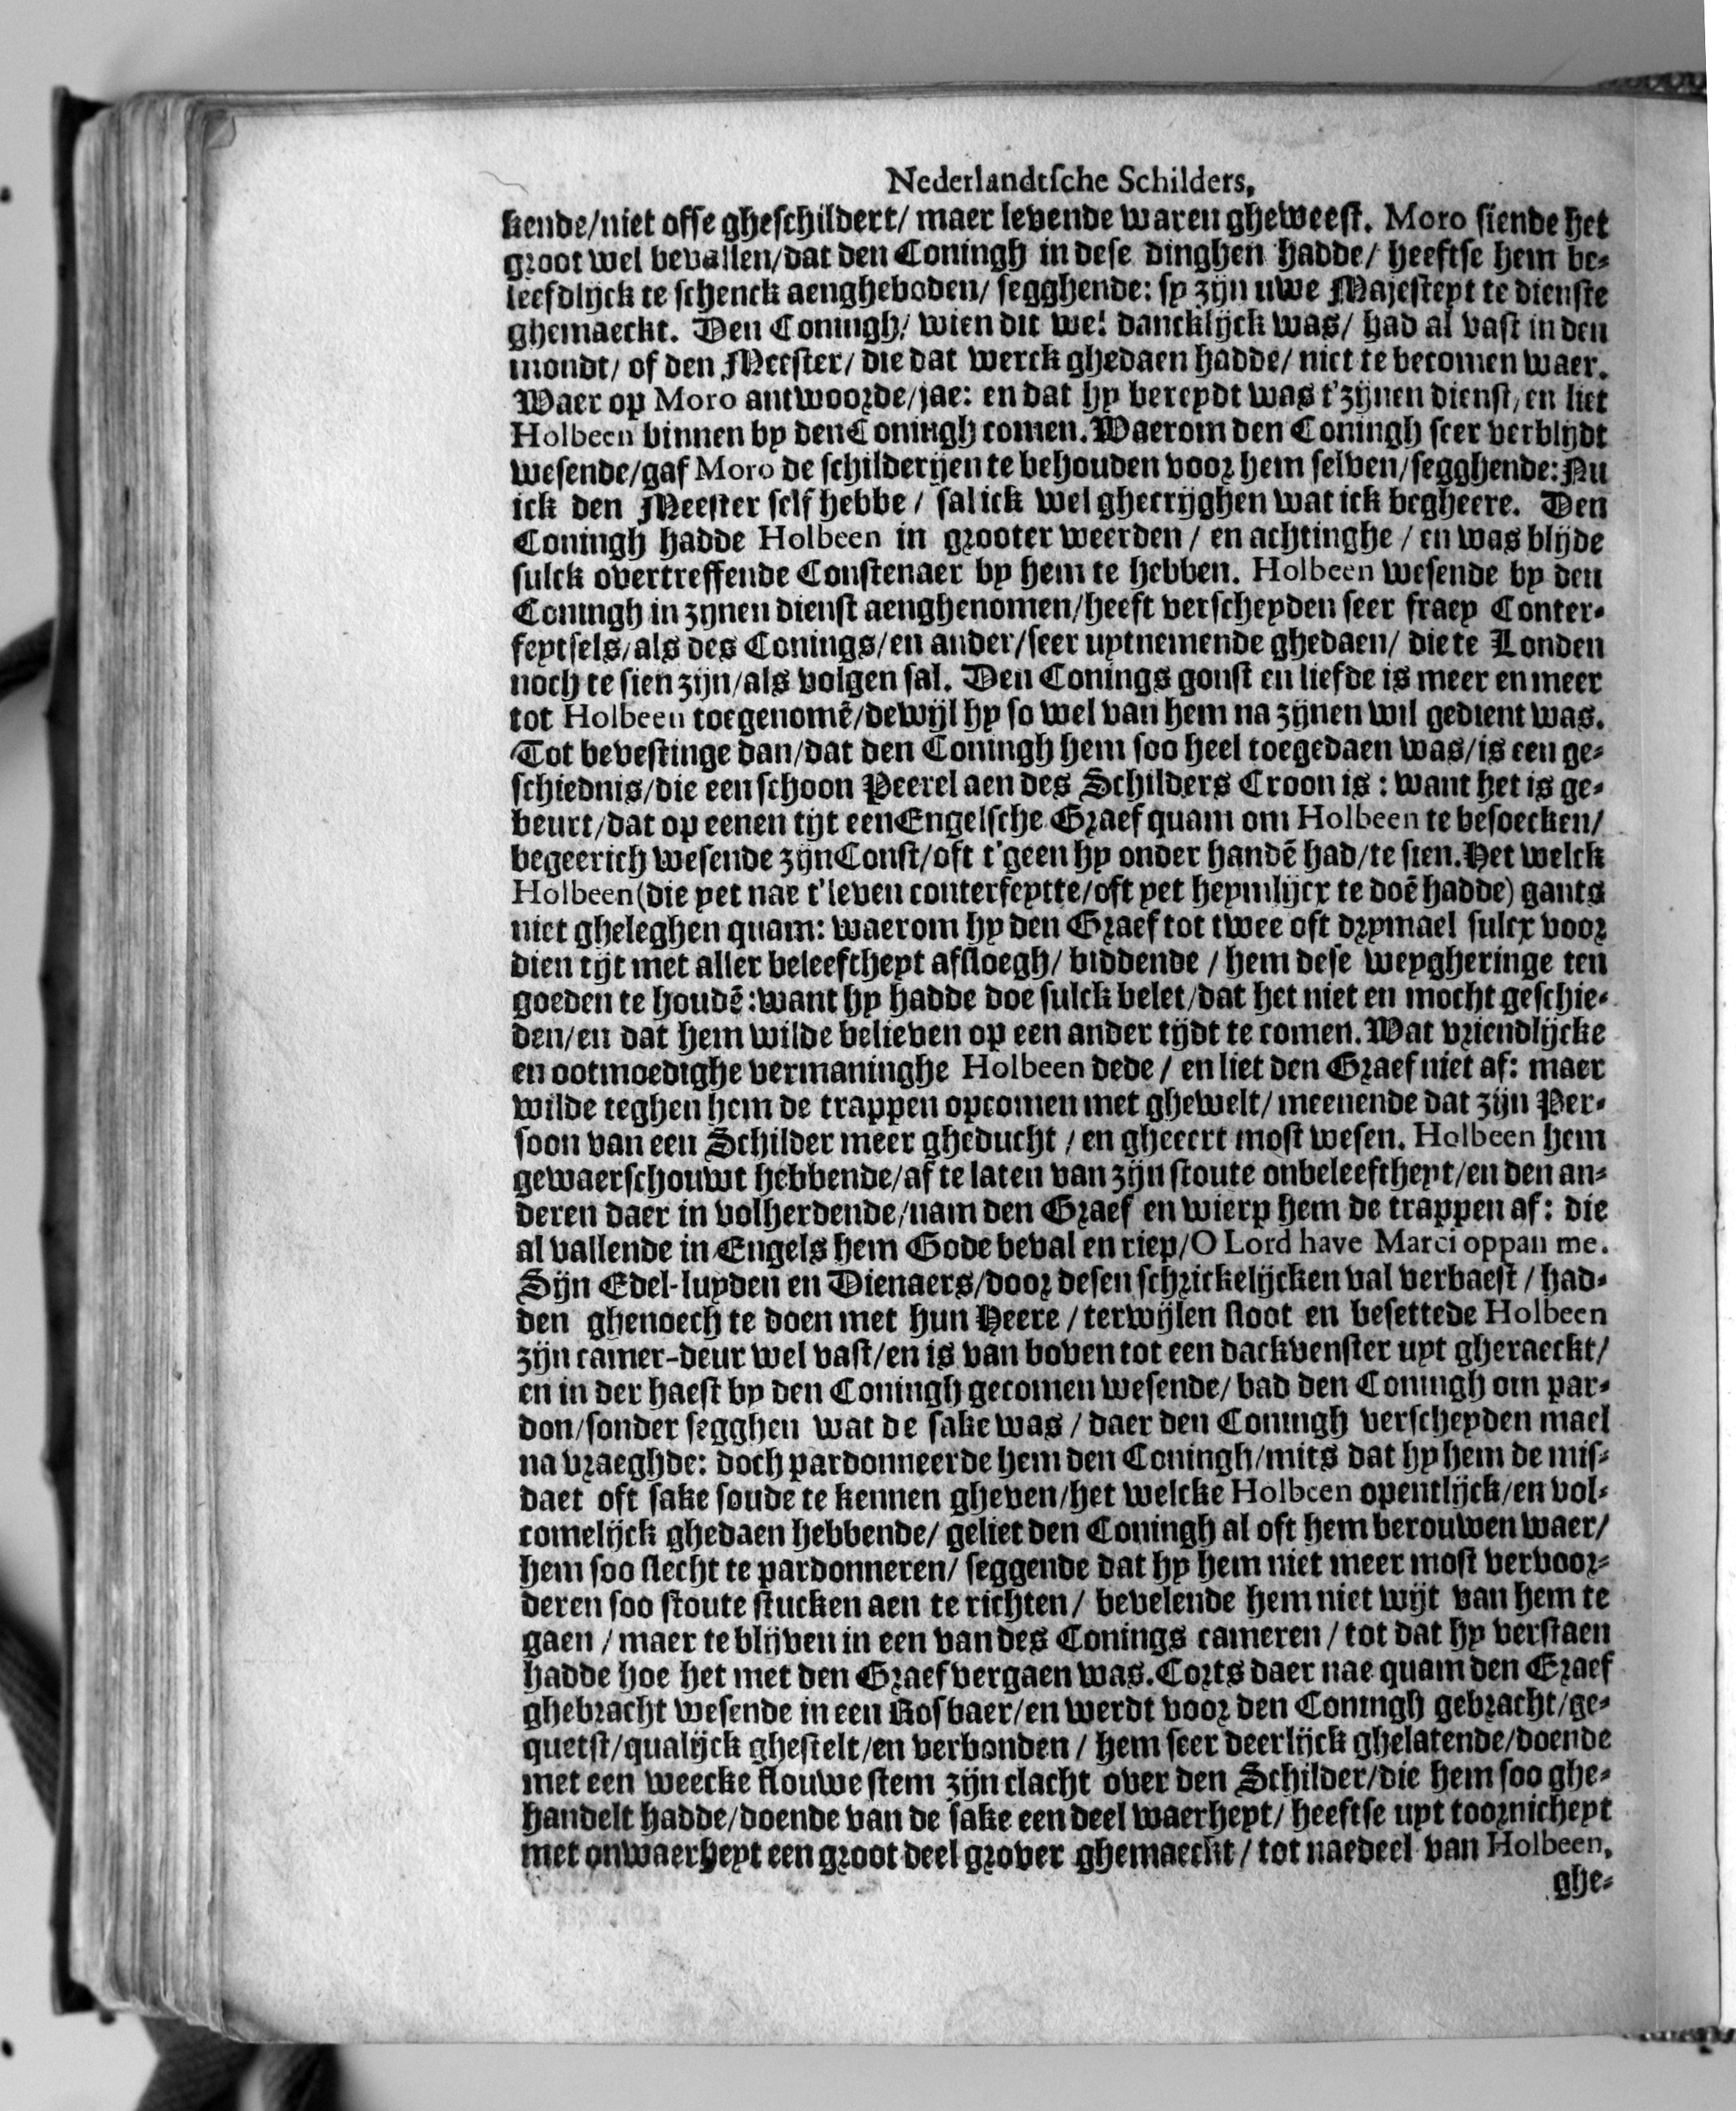 Nederlandtsche Schilders,
kende/niet offe gheschildert/ maer levende waren gheweest. Moro siende het
groot wel bevallen/dat den Coningh in dese dinghen hadde/ heeftse hem be-
leefdlijck te schenck aengheboden/ segghende: sy zijn uwe Majesteyt te dienste
ghemaeckt. Den Coningh/ wien dit wel dancklijck was/ had al vast in den
mondt/ of den Meester/ die dat werck ghedaen hadde/ niet te becomen waer.
Waer op Moro antwoorde/jae: en dat hy bereydt was t'zijnen dienst/en liet
Holbeen binnen by den Coningh comen. Waerom den Coningh seer verblijdt
wesende/gaf Moro de schilderijen te behouden voor hem selven/segghende: Nu
ick den Meester self hebbe / sal ick wel ghecrijghen wat ick begheere. Den
Coningh hadde Holbeen in grooter weerden / en achtinghe / en was blijde
sulck overtreffende Constenaer by hem te hebben. Holbeen wesende by den
Coningh in zynen dienst aenghenomen/heeft verscheyden seer fraey Conter-
feytsels/als des Conings/en ander/seer uytnemende ghedaen/ die te Londen
noch te sien zijn/als volgen sal. Den Conings gonst en liefde is meer en meer
tot Holbeen toegenomē/dewijl hy so wel van hem na zijnen wil gedient was.
Tot bevestinge dan/dat den Coningh hem soo heel toegedaen was/is een ge-
schiednis/die een schoon Peerel aen des Schilders Croon is : want het is ge-
beurt/dat op eenen tijt een Engelsche Graef quam om Holbeen te besoecken/
begeerich wesende zijn Const/oft t'geen hy onder handē had/te sien. Het welck
Holbeen (die yet nae t'leven conterfeytte/oft yet heymlijcx te doē hadde) gants
niet gheleghen quam: waerom hy den Graef tot twee oft drymael sulcx voor
dien tijt met aller beleeftheyt afsloegh/ biddende / hem dese weygheringe ten
goeden te houdē: want hy hadde doe sulck belet/dat het niet en mocht geschie-
den/en dat hem wilde believen op een ander tijdt te comen. Wat vriendlijcke
en ootmoedighe vermaninghe Holbeen dede / en liet den Graef niet af: maer
wilde teghen hem de trappen opcomen met ghewelt/ meenende dat zijn Per-
soon van een Schilder meer gheducht / en gheeert most wesen. Holbeen hem
gewaerschouwt hebbende/af te laten van zijn stoute onbeleeftheyt/en den an-
deren daer in volherdende/nam den Graef en wierp hem de trappen af: die
al vallende in Engels hem Gode beval en riep/O Lord have Marci oppan me.
Sijn Edel-luyden en Dienaers/door desen schrickelijcken val verbaest / had-
den ghenoech te doen met hun Heere / terwijlen sloot en besettede Holbeen
zijn camer-deur wel vast/en is van boven tot een dackvenster uyt gheraeckt/
en in der haest by den Coningh gecomen wesende/ bad den Coningh om par-
don/sonder segghen wat de sake was / daer den Coningh verscheyden mael
na vraeghde: doch pardonneerde hem den Coningh/mits dat hy hem de mis-
daet oft sake soude te kennen gheven/het welcke Holbeen opentlijck/en vol-
comelijck ghedaen hebbende/ geliet den Coningh al oft hem berouwen waer/
hem soo slecht te pardonneren/ seggende dat hy hem niet meer most vervoor-
deren soo stoute stucken aen te richten/ bevelende hem niet wijt van hem te
gaen / maer te blijven in een van des Conings cameren / tot dat hy verstaen
hadde hoe het met den Graef vergaen was. Corts daer nae quam den Graef
ghebracht wesende in een Rosbaer/en werdt voor den Coningh gebracht/ge-
quetst/qualijck ghestelt/en verbonden / hem seer deerlijck ghelatende/doende
met een weecke flouwe stem zijn clacht over den Schilder/die hem soo ghe-
handelt hadde/doende van de sake een deel waerheyt/ heeftse uyt toornicheyt
met onwaerheyt een groot deel grover ghemaeckt / tot naedeel van Holbeen,
ghe-